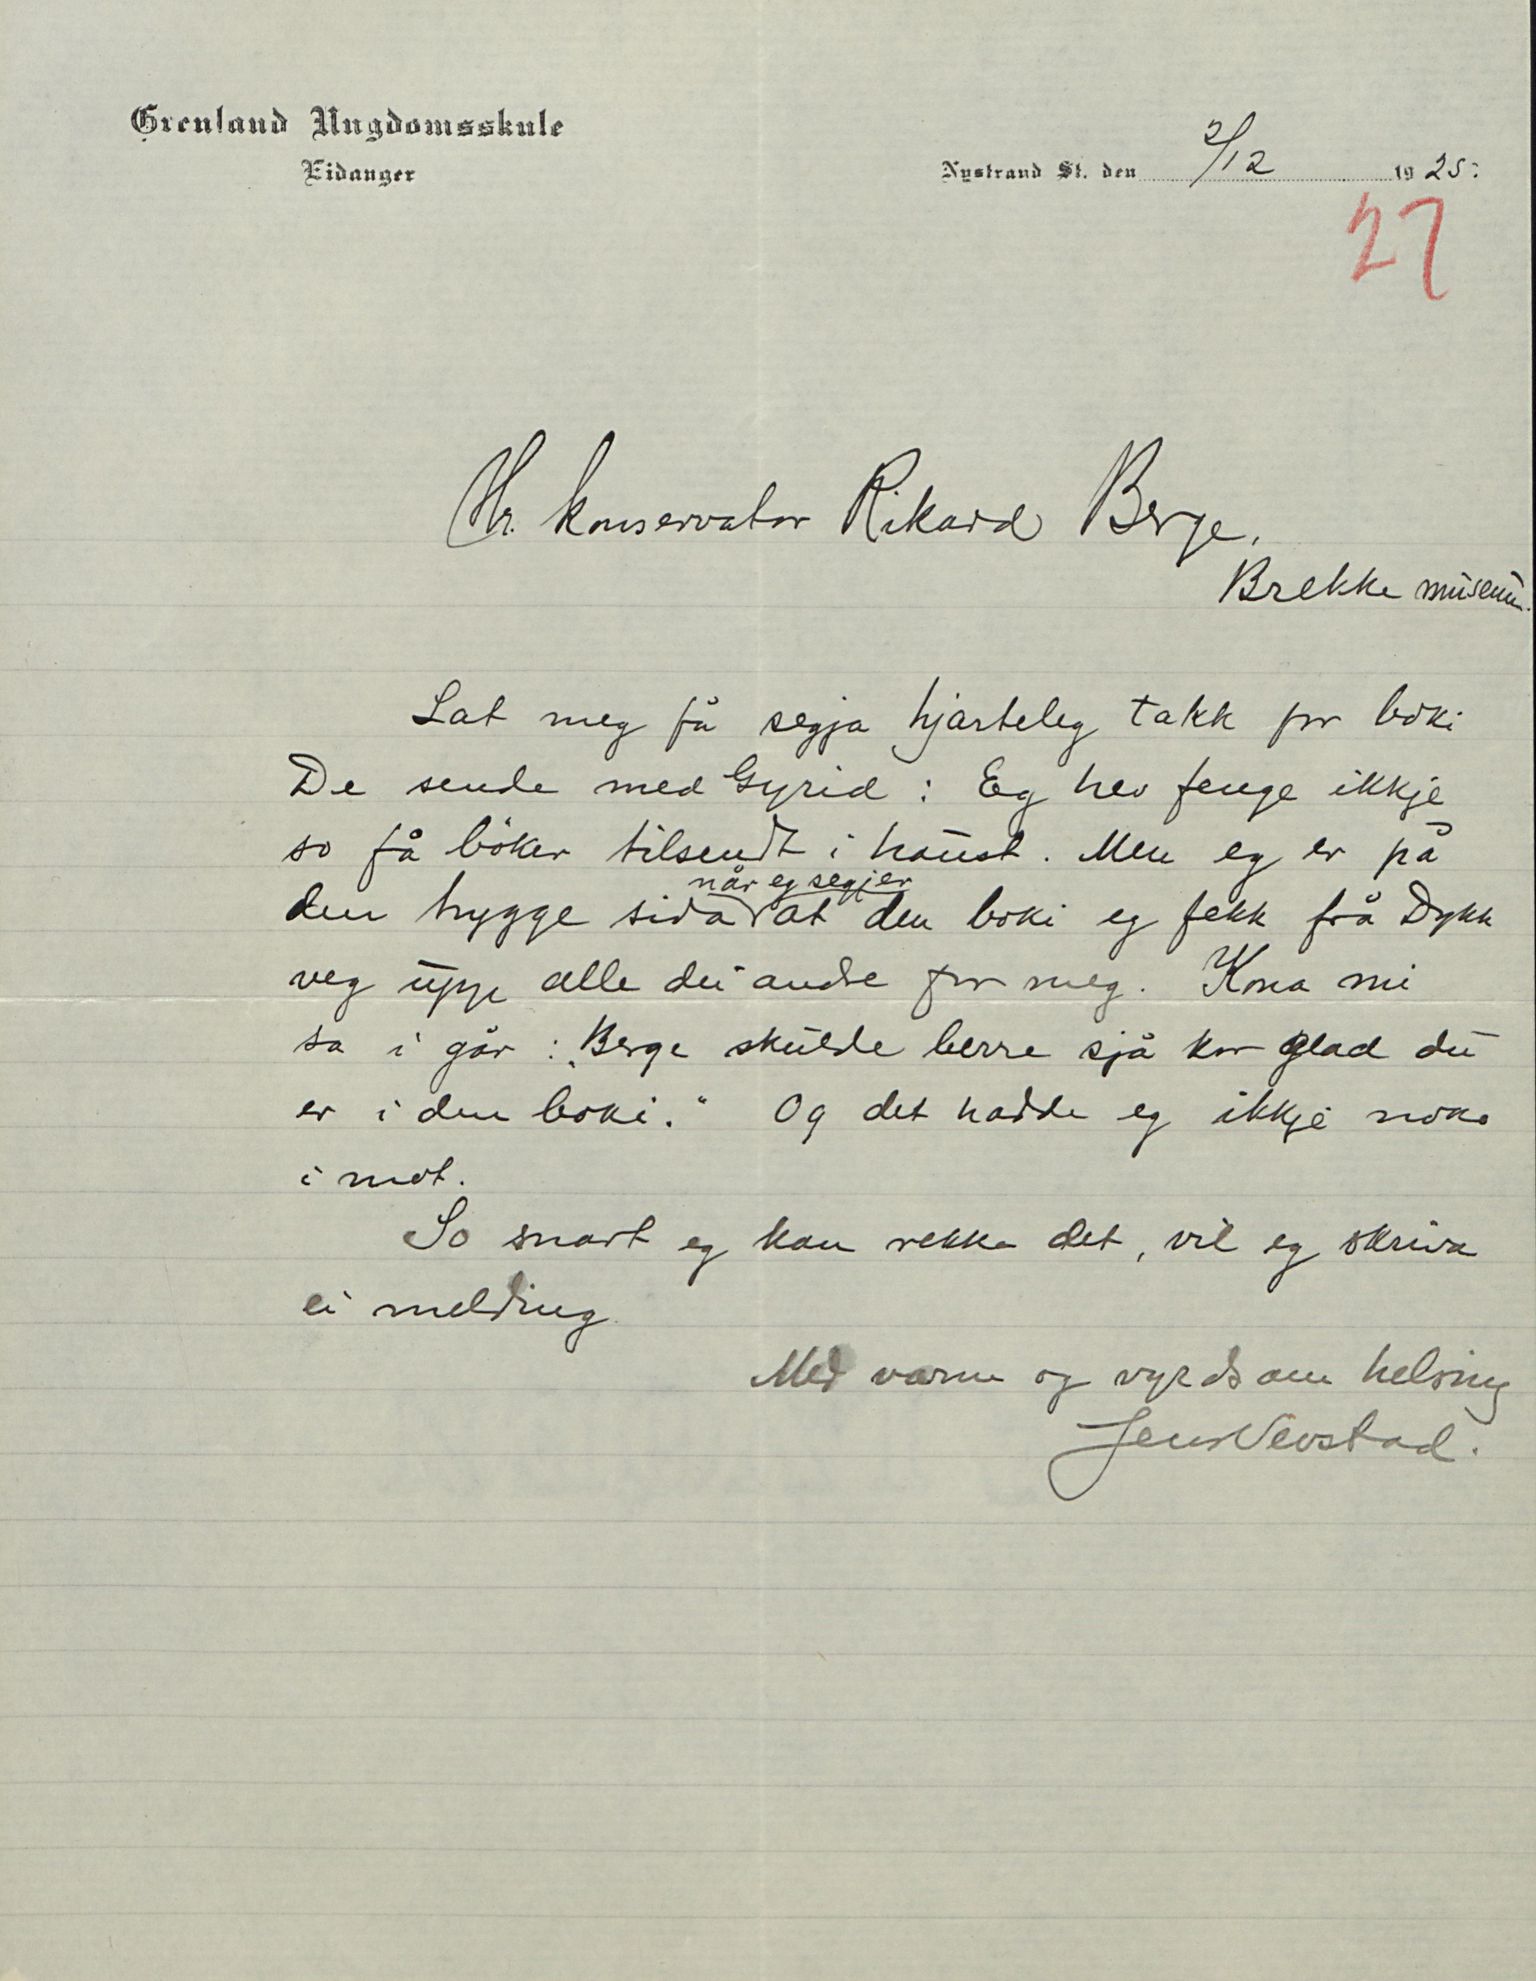 Grenland Ungdomsskule
Eidanger
Nystrand St. den 2/12 1925.
27
Hr. konservator Rikard Berge,
Brekke museum.
Lat meg få segja hjarteleg takk for boki
De sende med Gyrid: Eg hev fenge ikkje
so få böker tilsendt i haust. Men eg er på
når eg segjer
den trygge sida at den boki eg fekk frå Dykk
veg upp alle dei andre for meg. Kona mi
sa i går: „Berge skulde berre sjå kor glad du
er i den boki." Og det hadde eg ikkje noko
i mot.
So snart eg kan rekka det, vil eg skriva
ei melding.
Med varm og vyrdsam helsing
Jens Vevstad.